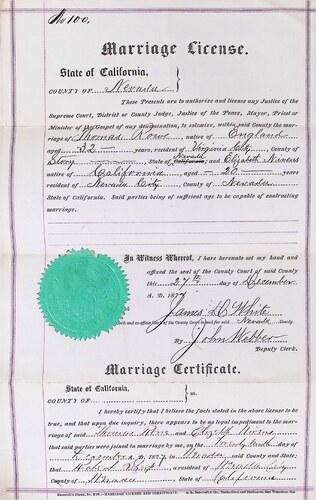 No 100.
Marriage License.
State of California,
COUNTY OF Nevada
ss.
These Presents are to authorize and license any Justice of the
Supreme Court, District or County Judge, Justice of the Peace, Mayor, Priest or
Minister of the Gospel of any denomination, to solemnize, within said County the mar-
riage of Thomas Rowe, native of England
aged 32 years, resident of Virginia City County of
Story State of California Nevada and Elizabeth Nivens
native of California, aged 23 years
resident of Nevada City, County of Nevada
State of California. Said parties being of sufficient age to be capable of contracting
marriage.
In Witness Whereof, I have hereunto set my hand and
affixed the seal of the County Court of said County
this 27th day of December
A. D. 1877
James D White
Clerk and ex-officio Clerk of the County Court in and for said Nevada County.
By John Webber
Deputy Clerk.
Marriage Certificate.
State of California,
COUNTY OF
ss.
I hereby certify that I believe the facts stated in the above license to be
true, and that upon due inquiry, there appears to be no legal impediment to the
marriage of said Thomas Rowe and Elizabeth Nivens
that said parties were joined in marriage by me, on the day of
December 1877 in Nevada said County and State; that
a resident of Nevada City
County of Nevada State of California